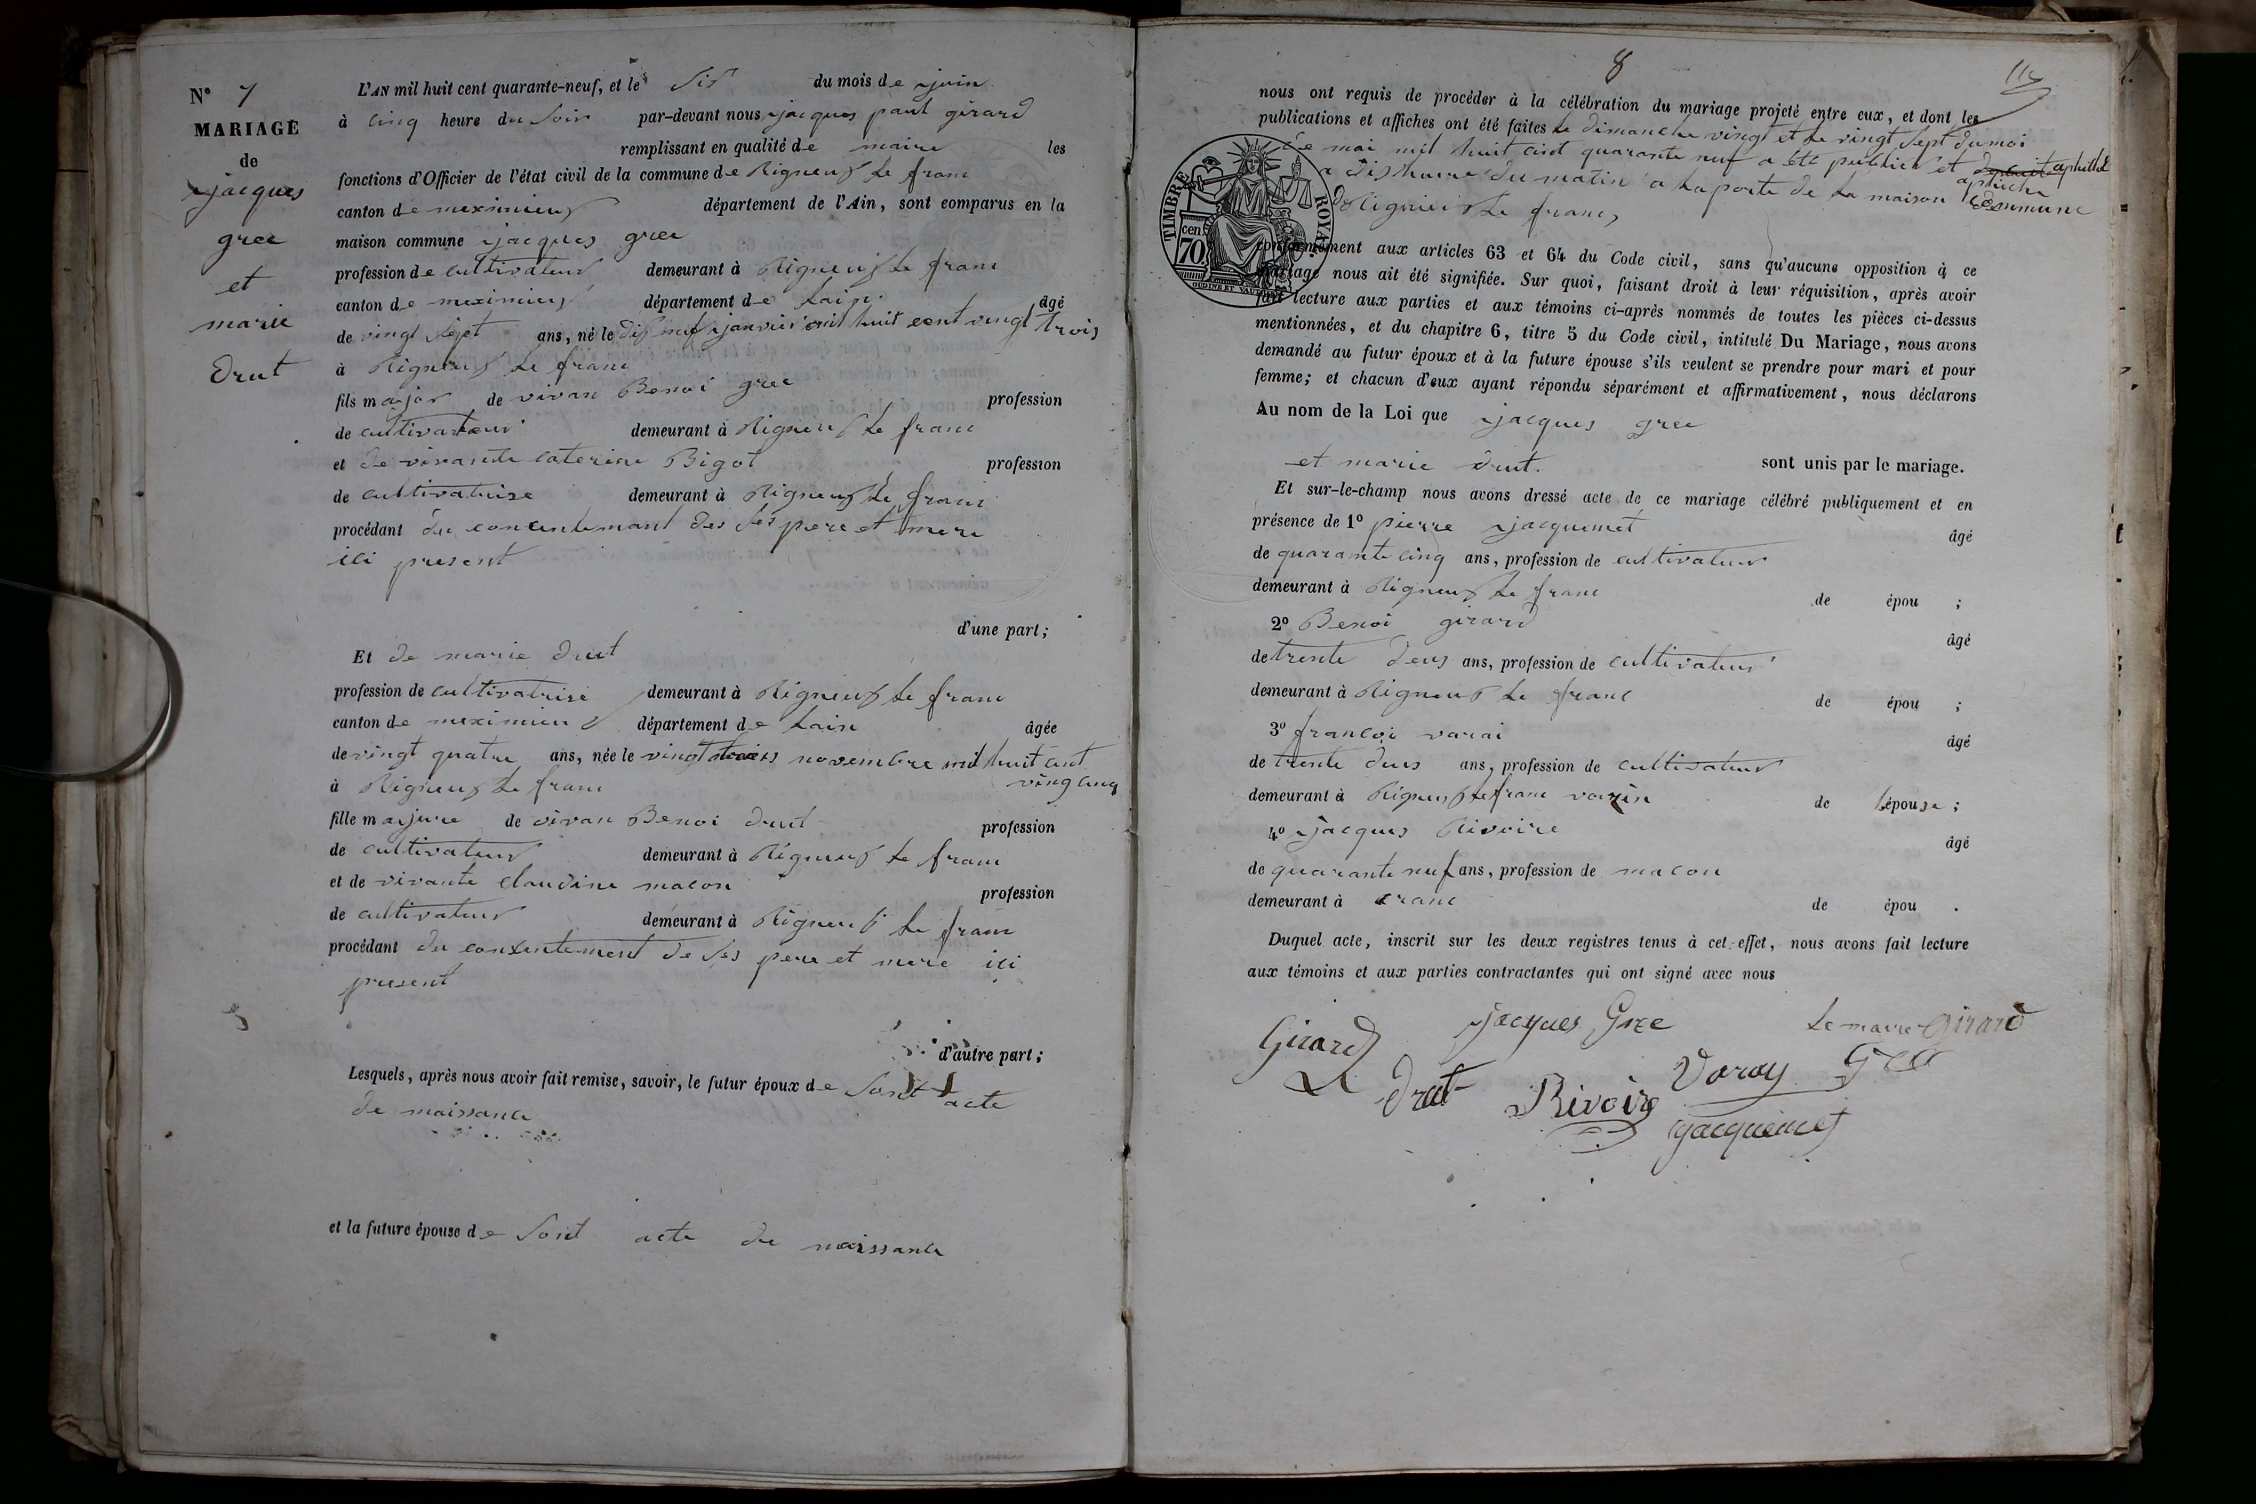 N° 7
MARIAGE
de
jacques
gree
et
marie
drut
L'AN mil huit cent quarante-neuf, et le Sis du mois de juin
à cinq heure du Soir par-devant nous jacques paul girard
remplissant en qualité de maire les
fonctions d'Officier de l'état civil de la commune de Rigneux le franc
canton de meximieux département de l'Ain, sont comparus en la
maison commune jacques gree
profession de cultivateur demeurant à Rigneux le franc
canton de meximieux département de Lain âgé
de vingt sept ans, né le dis neuf janvier mil huit cent vingt trois
à Rigneux le franc
fils major de vivan Benoi gree profession
de cultivateur demeurant à Rigneux le franc
et de vivante caterine Bigot profession
de cultivatrise demeurant à Rigneux le franc
procédant du concentemant des Ses pere et mere
ici present
d'une part;
Et de marie drut
profession de cultivatrise demeurant à Rigneux le franc
canton de meximieux département de Lain âgée
de vingt quatre ans, née le vingt novembre mil huit cent
vingt cinq
à Rigneux le franc
fille majure de vivan Benoi drut profession
de cultivateur demeurant à Rigneux le franc
et de vivante claudine macon profession
de cultivateur demeurant à Rigneux le franc
procédant du consentement de Ses pere et mere ici
present
d'autre part;
Lesquels, après nous avoir fait remise, savoir, le futur époux de Sont acte
de naissance
et la future épouse de Sont acte de naissance
8
nous ont requis de procéder à la célébration du mariage projeté entre eux, et dont les
publications et affiches ont été faites le dimanche vingt et le vingt Sept du moi
de mai mil huit cent quarante neuf a été publier et
a dis heure du matin a la porte de la maison commune
de Rigneux le franc,
TIMBRE ROYAL
70 cen.
conformément aux articles 63 et 64 du Code civil, sans qu'aucune opposition à ce
mariage nous ait été signifiée. Sur quoi, faisant droit à leur réquisition, après avoir
fait lecture aux parties et aux témoins ci-après nommés de toutes les pièces ci-dessus
mentionnées, et du chapitre 6, titre 5 du Code civil, intitulé Du Mariage, nous avons
demandé au futur époux et à la future épouse s'ils veulent se prendre pour mari et pour
femme; et chacun d'eux ayant répondu séparément et affirmativement, nous déclarons
Au nom de la Loi que jacques gree
et marie drut. sont unis par le mariage.
Et sur-le-champ nous avons dressé acte de ce mariage célébré publiquement et en
présence de 1° pierre jacquemet âgé
de quarante cinq ans, profession de cultivateur
demeurant à Rigneux le franc de épou ;
2° Benoi girard âgé
de trente deus ans, profession de cultivateur
demeurant à Rigneux le franc de épou ;
3° francoi varai âgé
de trente deus ans, profession de cultivateur
demeurant à Rigneux le franc de Lépouse ;
4° jacques Rivoire âgé
de quarante neuf ans, profession de macon
demeurant à crans de épou .
Duquel acte, inscrit sur les deux registres tenus à cet effet, nous avons fait lecture
aux témoins et aux parties contractantes qui ont signé avec nous
Girard jacques Gree Le maire Girard
drut Rivoire Varay Gree
jacquemet